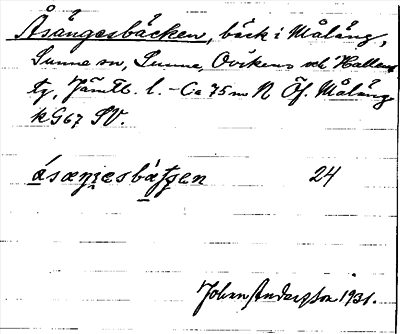 Åsångesbäcken, bäck i Målång,
Sunne sn, Sunne, Ovikens och Hallens
tg, Jämtl. l. - Ca 75 m N Öf. Målång
kG67 SV.
24
Johan Andersson 1931.